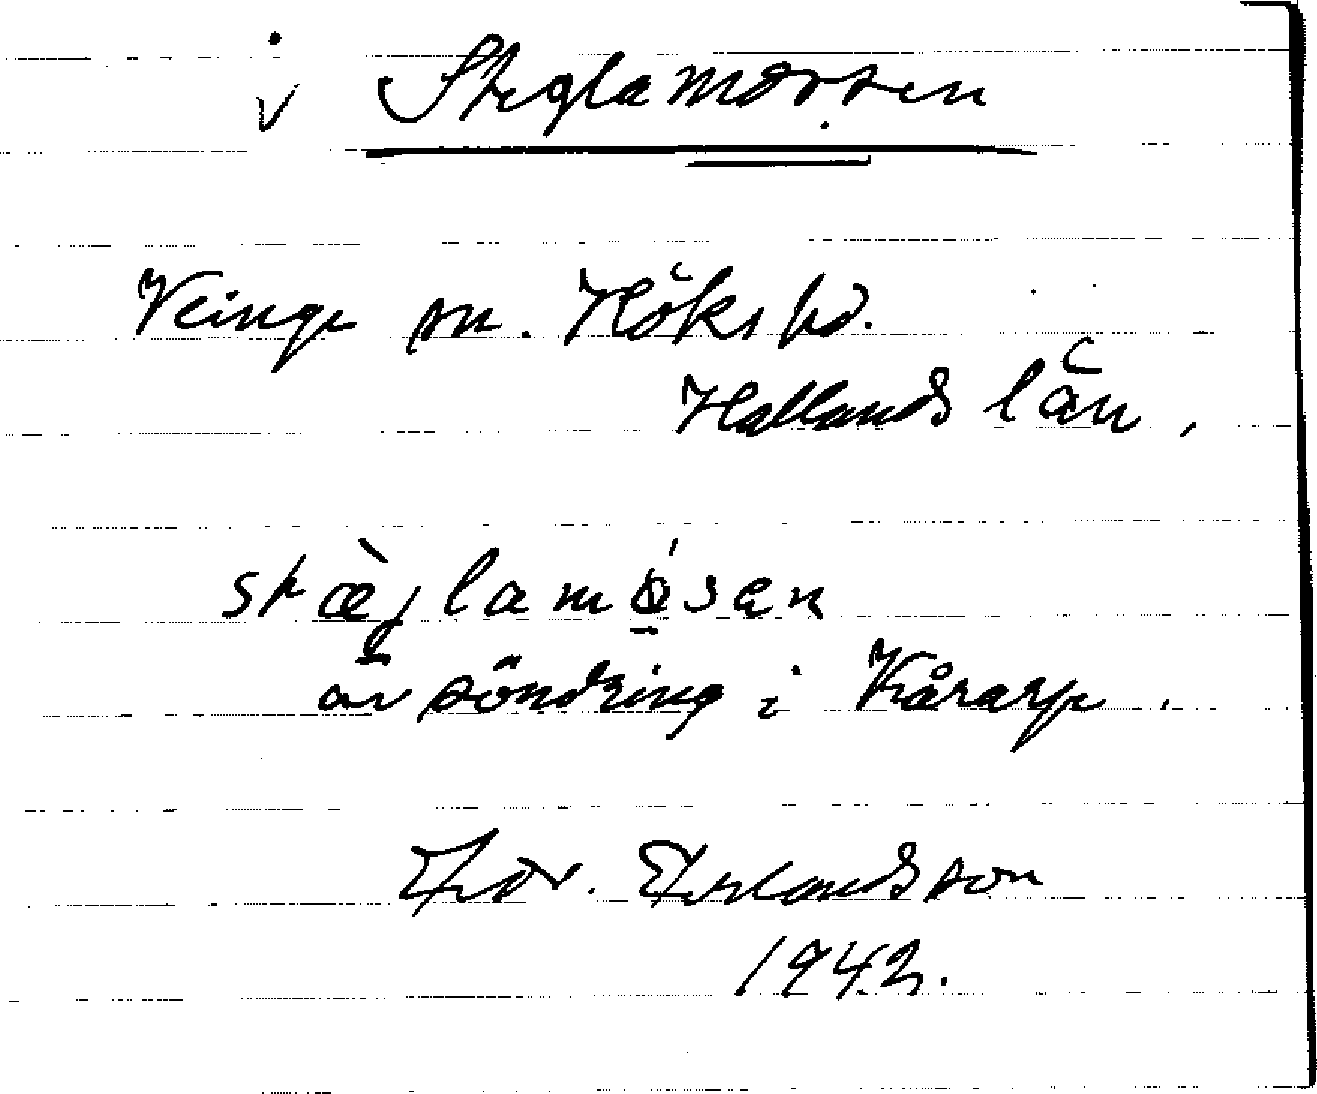 v Steglamossen
Veinge sn. Höks hd.
Hallands län,
stæ̀glamósen
avsöndring i Kårarp.
Thor. Erlandsson
1942.